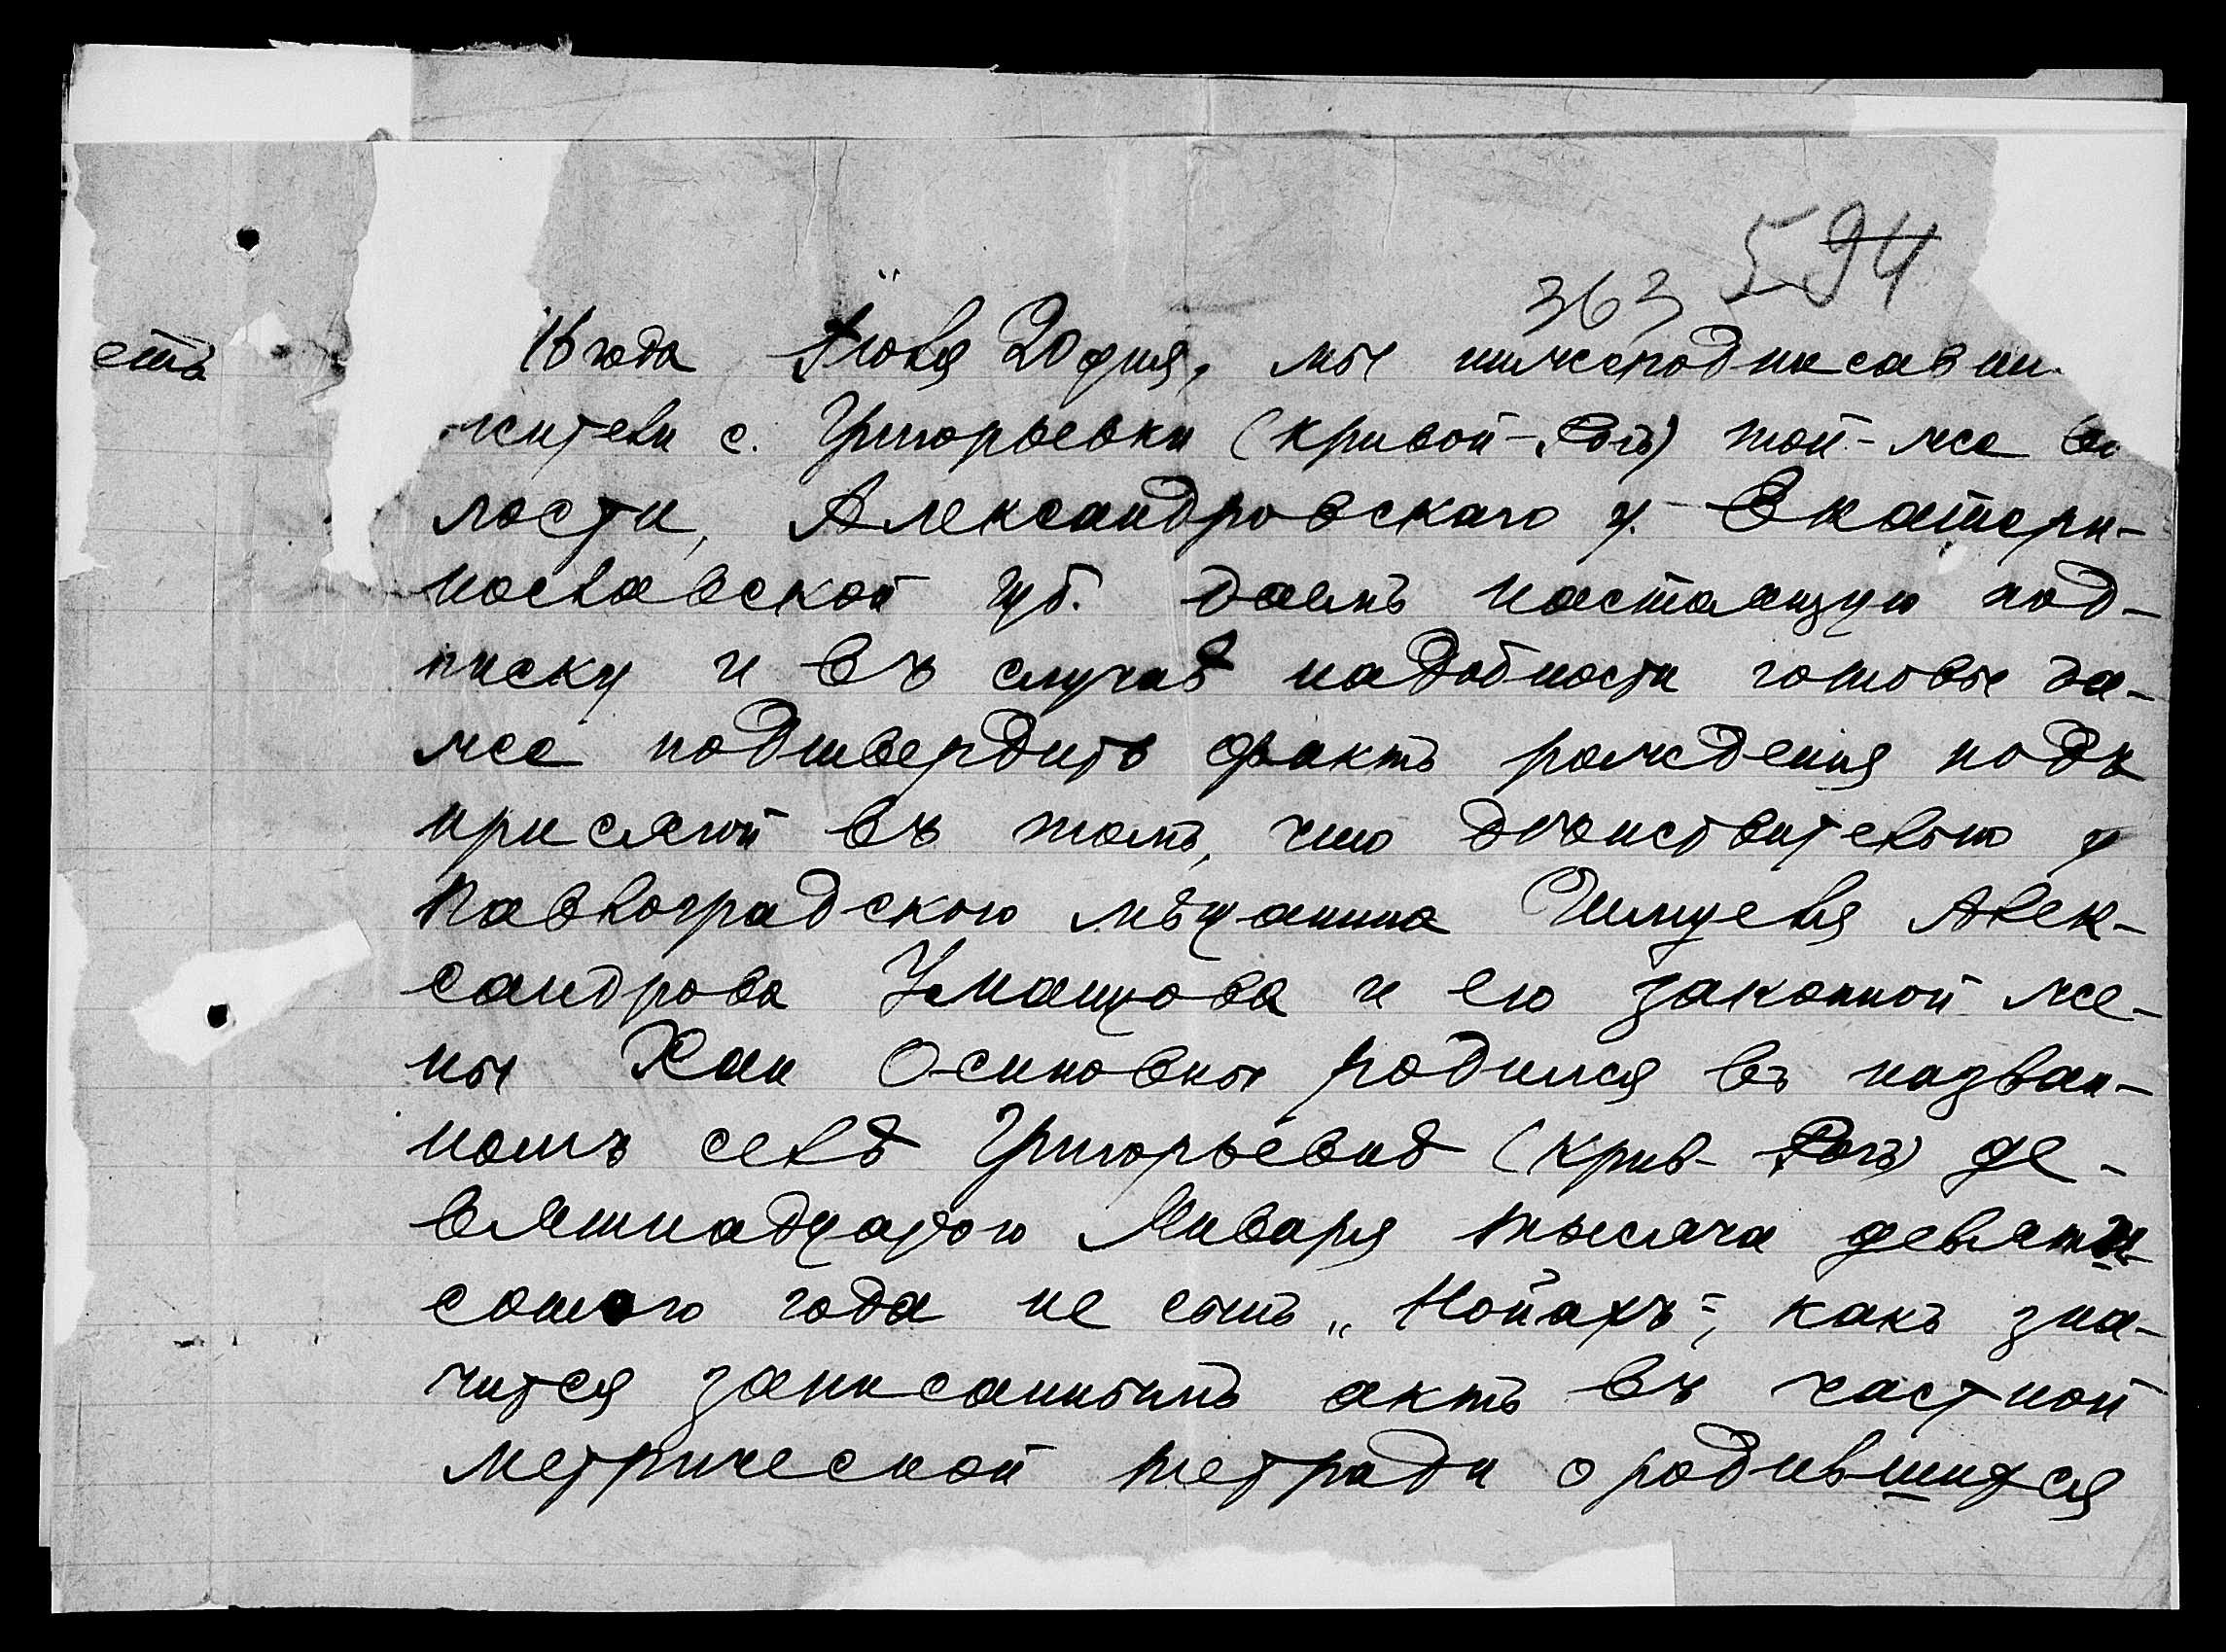 594
363
еть
16 года Іюля 20 дня, мы нижеподписавши
жители с. Григорьевки (Кривой-Рогъ) той-же во
лости, Александровскаго у. Екатери-
нославской губ. даемъ настоящую под-
писку и въ случаѣ надобности готовы да-
же подтвердить фактъ рожденія подъ
присягой въ томъ, что дѣйствительно у
Павлоградского мѣщанина Александрова
сандрова Уманцова и его законной же-
ны Хаи Осиповны родился въ назван-
номъ селѣ Григорьевкѣ (Крив-Рогъ) де-
вятнадцатого Января тысяча девяти
сотого года не сынъ „Нойахъ", какъ зна-
чится записаннымъ актъ въ частной
метрической тетради о родившихся